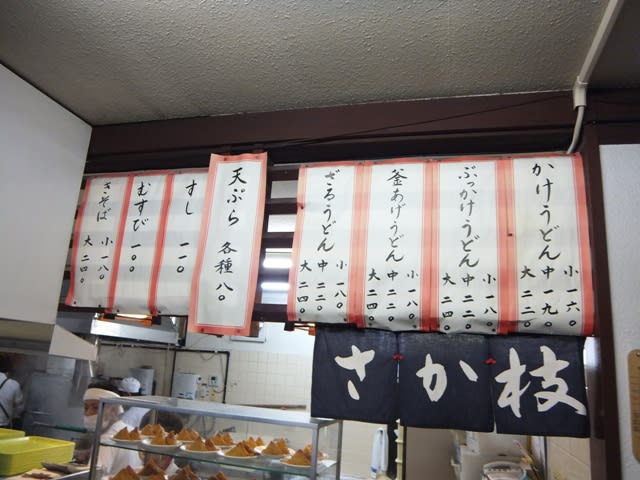 かけうどん
小 一六〇
中 一九〇
大 二二〇
ぶっかけうどん
小 一八〇
中 二二〇
大 二四〇
釜あげうどん
小 一八〇
中 二二〇
大 二四〇
ざるうどん
小 一八〇
中 二二〇
大 二四〇
天ぷら 各種 八〇
すし 一一〇
むすび 一〇〇
きそば
小 一八〇
大 二四〇
さか枝